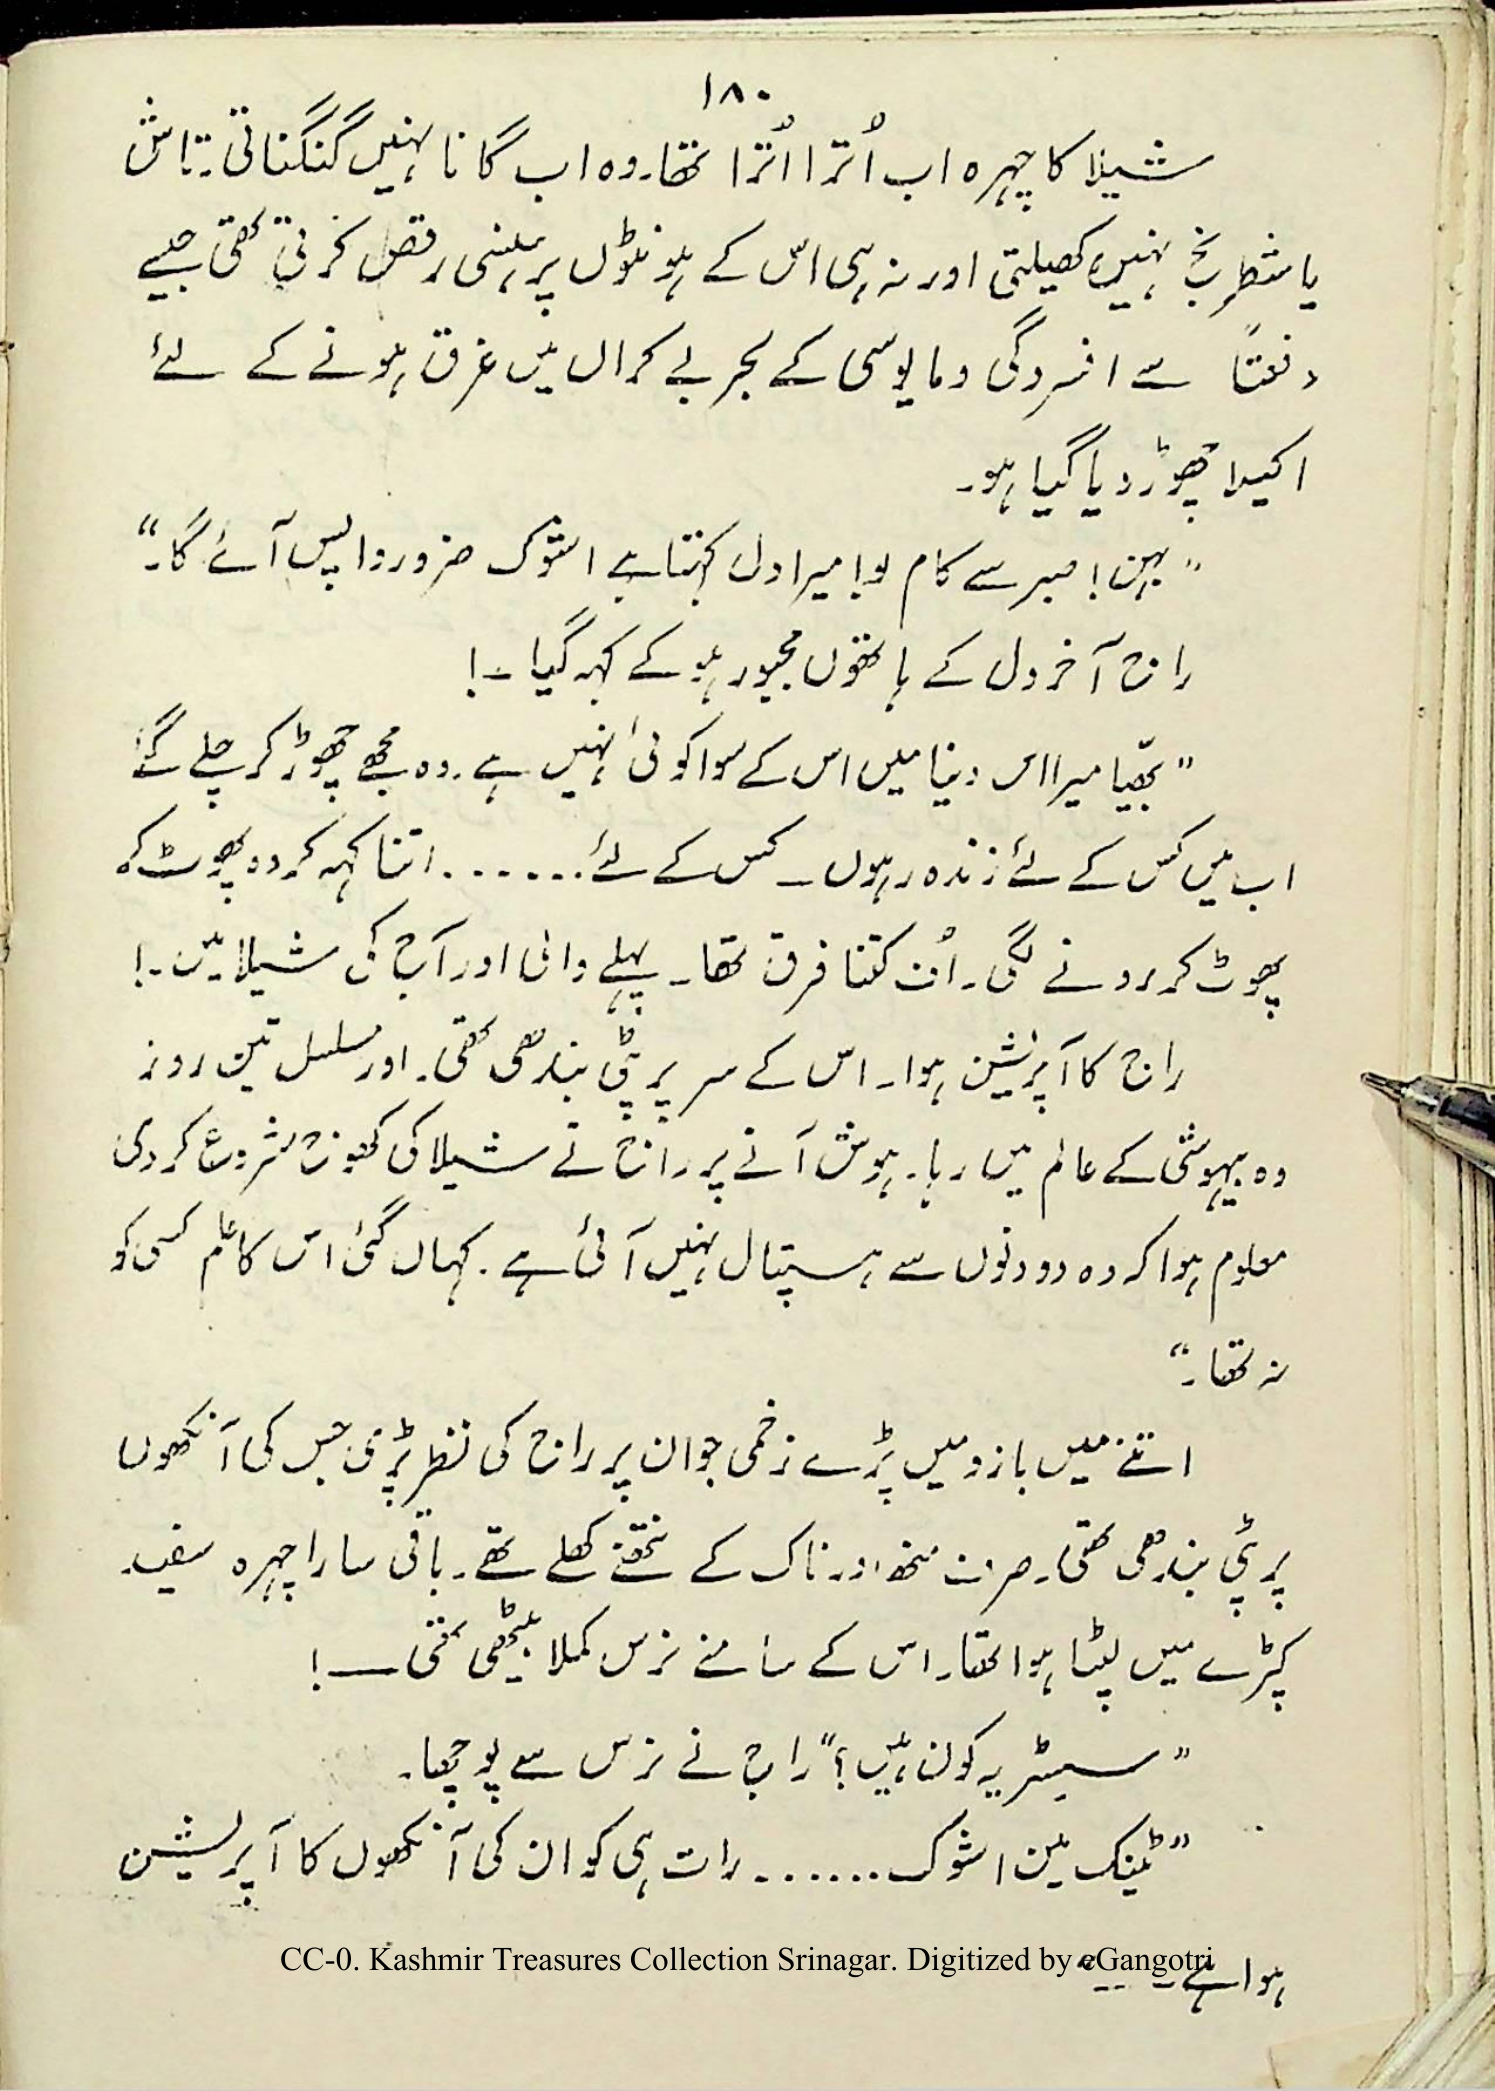 ۱۸۰
شیلا کا چہرہ اب اُترا اُترا تھا۔ وہ اب گانا نہیں گنگناتی۔ تاش
یا شطرنج نہیں کھیلتی اور نہ ہی اس کے ہونٹوں پر ہنسی رقص کرتی تھی جیسے
دفعتاً سے افسردگی و مایوسی کے بحر بے کراں میں غرق ہونے کے لئے
اکیلا چھوڑ دیا گیا ہو۔
"بہن! صبر سے کام لو! میرا دل کہتا ہے اشوک ضرور واپس آئے گا۔"
راج آخر دل کے ہاتھوں مجبور ہو کے کہہ گیا۔!
"بھیّا میرا اس دنیا میں اس کے سوا کوئی نہیں ہے۔ وہ مجھے چھوڑ کر چلے گئے
اب میں کس کے لئے زندہ رہوں۔ کس کے لئے....... اتنا کہہ کر وہ پھوٹ کر
پھوٹ کر رونے لگی۔ اُف کتنا فرق تھا۔ پہلے والی اور آج کی شیلا میں۔!
راج کا آپریشن ہوا۔ اس کے سر پر پٹی بندھی تھی۔ اور مسلسل تین روز
وہ بیہوشی کے عالم میں رہا۔ ہوش آنے پر راج نے شیلا کی کھوج شروع کر دی
معلوم ہوا کہ وہ دو دنوں سے ہسپتال نہیں آئی ہے۔ کہاں گئی اس کا علم کسی کو
نہ تھا۔"
اتنے میں بازو میں پڑے زخمی جوان پر راج کی نظر پڑی جس کی آنکھوں
پر پٹی بندھی تھی۔ صرف منھ اور ناک کے نتھنے کھلے تھے۔ باقی سارا چہرہ سفید
کپڑے میں لپٹا ہوا تھا۔ اس کے سامنے نرس کملا بیٹھی تھی —!
"سسٹر یہ کون ہیں؟" راج نے نرس سے پوچھا۔
"ٹینک مین اشوک....... رات ہی کو ان کی آنکھوں کا آپریشن
ہوا ہے۔"
CC-0. Kashmir Treasures Collection Srinagar. Digitized by eGangotri